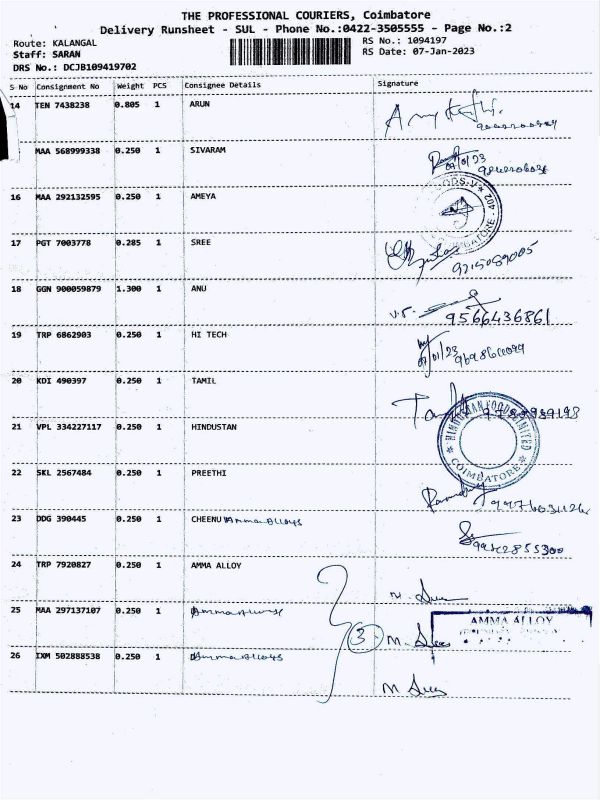 THE PROFESSIONAL COURIERS, Coimbatore
Delivery Runsheet - SUL - Phone No.:0422-3505555 - Page No.:2
Route: KALANGAL RS No.: 1094197
Staff: SARAN RS Date: 07-Jan-2023
DRS No.: DCJB109419702
S No Consignment No Weight PCS Consignee Details Signature
14 TEN 7438238 0.805 1 ARUN
MAA 568999338 0.250 1 SIVARAM
16 MAA 292132595 0.250 1 AMEYA
17 PGT 7003778 0.285 1 SREE
18 GGN 900059879 1.300 1 ANU
9566436861
19 TRP 6862903 0.250 1 HI TECH
07/01/23
20 KDI 490397 0.250 1 TAMIL
21 VPL 334227117 0.250 1 HINDUSTAN
COIMBATORE
22 SKL 2567484 0.250 1 PREETHI
23 DDG 390445 0.250 1 CHEENU Amma Alloys
24 TRP 7920827 0.250 1 AMMA ALLOY
25 MAA 297137107 0.250 1 Amma Alloys
3
AMMA ALLOY
26 IXM 502888538 0.250 1 Amma Alloys